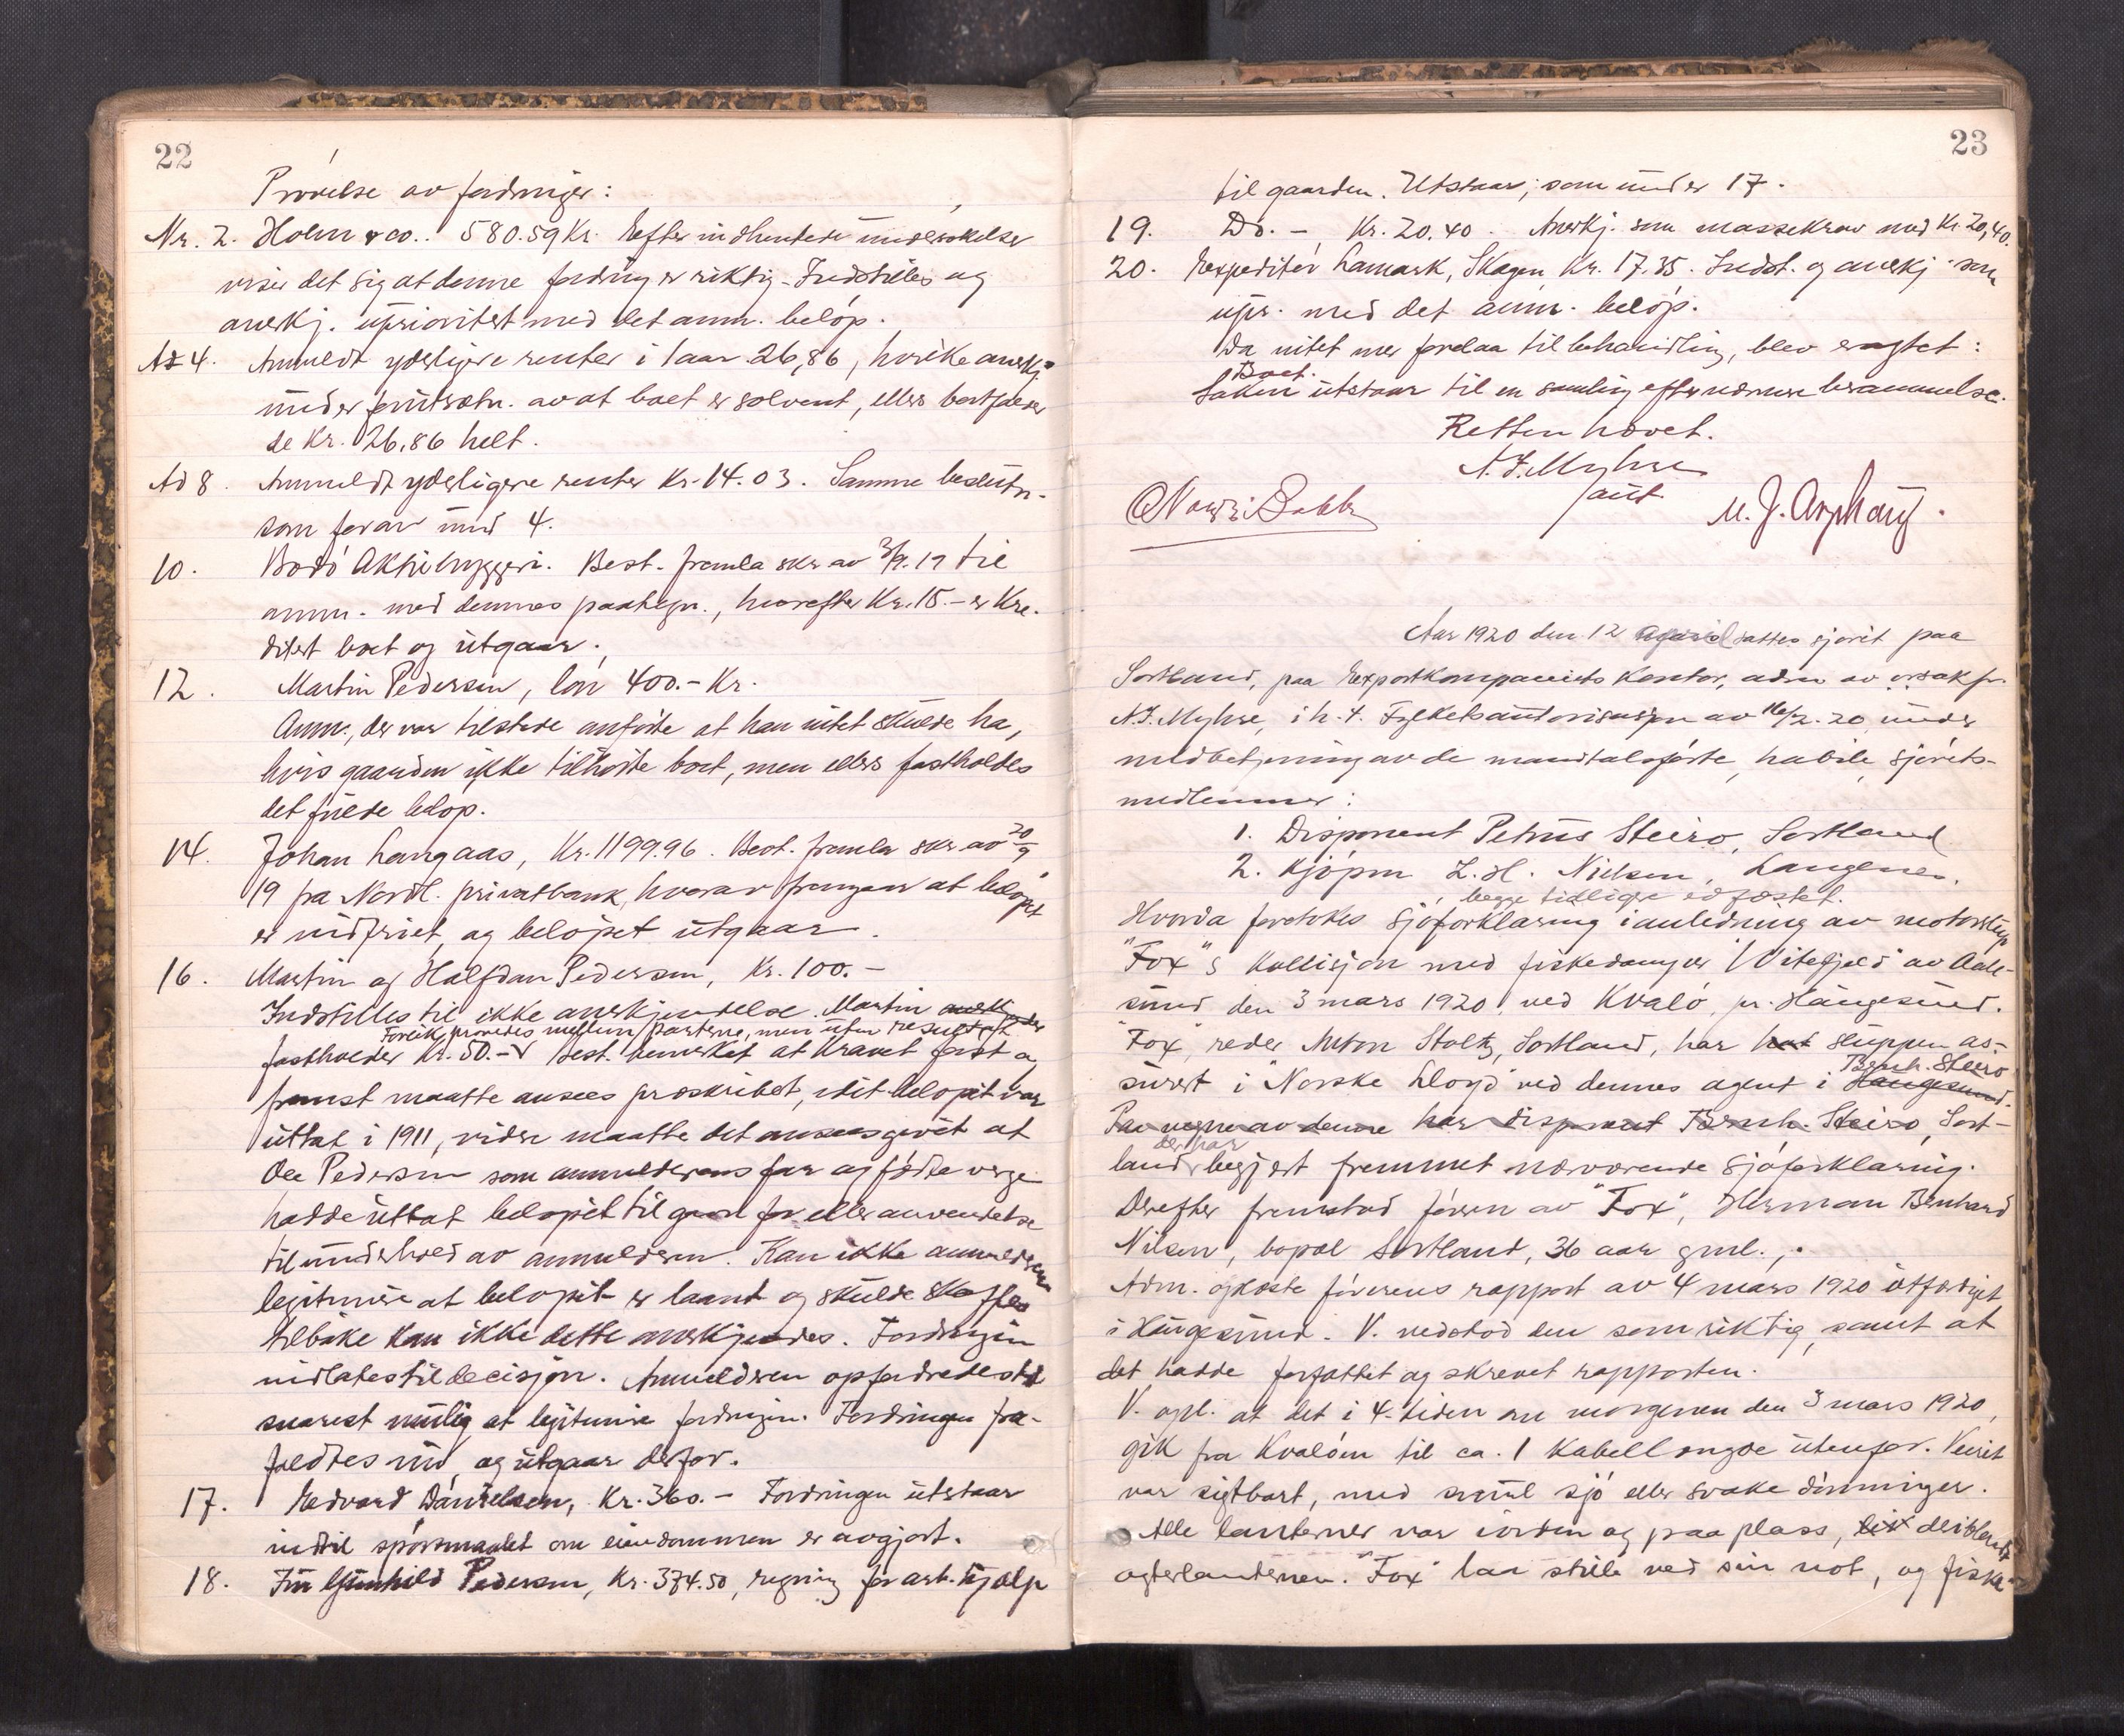 22
Prövelse av fordringer:
Nr. 2. Holm & co.. 580.59 Kr. Efter indhentede undersökelse
viser det sig at denne fordring er riktig - Indstilles og
anerkj. uprioritert med det anm. belöp.
Ad 4. Anmeldt yderligere renter i 1 aar 26,86, hvilke anerkj.
under forutsætn. av at boet er solvent, ellers bortfalder
de Kr. 26.86 helt.
Ad 8. Anmeldt yderligere renter Kr. 14.03. Samme beslutn.
som foran und 4.
10. Bodö Aktiebryggeri. Best. fremla skr av 3/9.19 til
anm. med dennes paategn., hvorefter Kr. 15.- er kre-
ditert boet og utgaar.
12. Martin Pedersen, lön 400.- Kr.
Anm., der var tilstede anförte at han intet skulde ha,
hvis gaarden ikke tilhörte boet, men ellers fastholdes
det fulde belöp.
14. Johan Langaas, Kr. 1199.96. Best. fremla skr av 20/9
19 fra Nordl. privatbank, hvorav fremgaar at belöpet
er indfriet, og belöpet utgaar.
16. Martin og Halfdan Pedersen, Kr. 100.-
Indstilles til ikke anerkjendelse. Martin anerkjender
Forlik prövedes mellem parterne, men uten resultat
fastholder Kr. 50.- Best. bemerket at kravet först og
fremst maatte ansees præskribert, idet belöpet var
uttat i 1911, videre maatte det ansees givet at
Ole Pedersen som anmelderens far og födte verge
hadde uttat belöpet til gavn for eller anvendelse
til underhold av anmelderen. Kan ikke anmelderen
legitimere at belöpet er laant og skulde skaffes
tilbake kan ikke dette anerkjendes. Fordringen
indlates til decisjon. Anmelderen opfordredes til
snarest mulig at legitimere fordringen. Fordringen fra-
faldtes nu, og utgaar derfor.
17. Edvard Danielsen, Kr. 360.- Fordringen utstaar
indtil spörsmaalet om eiendommen er avgjort.
18. Fru Gunhild Pedersen, Kr. 374.50, regning for arb. hjælp
23
til gaarden. Utstaar, som under 17.
19. Do. - Kr. 20.40. Anerkj. som massekrav med Kr. 20,40.
20. Expeditör Lamark, Skagen, Kr. 17.35. Indst. og anerkj. som
upr. med det anm. belöp.
Da intet mer forelaa til behandling, blev eragtet:
Boet.
Saken utstaar til en samling efter nærmere berammelse.
Retten hævet.
N. J. Myhre
aut.
M. J. Arphaug.
Aar 1920 den 12 april sattes sjöret paa
Sortland, paa Exportkompaniets kontor, adm av orsakfr.
N. J. Myhre, i h. t. Fylkets autorisasjon av 16/2.20, under
medbetjening av de mandtalsförte, habile, sjörets-
medlemmer:
1. Disponent Petrus Steiro, Sortland
2. Kjöpm L. H. Nielsen, Langenes.
begge tidligere edfæstet.
Hvorda foretokes sjöforklaring i anledning av motorskip
"Fox"s kollisjon med fiskedamper "Vitefjeld" av Aale-
sund den 3 mars 1920 ved Kvalö, pr. Haugesund.
"Fox", reder Anton Stoltz, Sortland, har hat sluppen as-
surert i "Norske Lloyd" ved dennes agent i Haugesund.
Bernh. Steiro
Paa vegne av denne har disponent Bernh. Steiro, Sort-
der har
land, begjært fremmet nærværende sjöforklaring.
Derefter fremstod föreren av "Fox", Herman Bernhard
Nilsen, bopæl Sortland, 36 aar gml.,.
Adm. oplæste förerens rapport av 4 mars 1920 utfærdiget
i Haugesund. V. vedstod den som riktig, samt at
det hadde forfattet og skrevet rapporten.
V. opl. at det i 4-tiden om morgenen den 3 mars 1920,
gik fra Kvalöen til ca. 1 kabellængde utenfor. Veiret
var sigtbart, med smul sjö eller svake dönninger.
Alle lanterner var iorden og paa plass, deriblandt
agterlanternen. "Fox" laa stille ved sin not, og fiske-